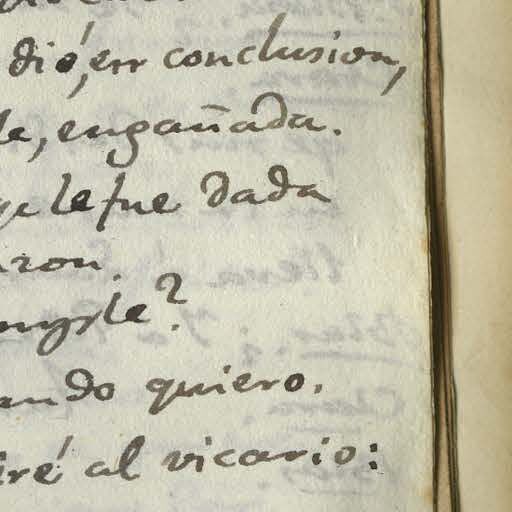 dió, en conclusion,
le, engañada.
qe le fue dada
zon.
quiero.
iré al vicario: